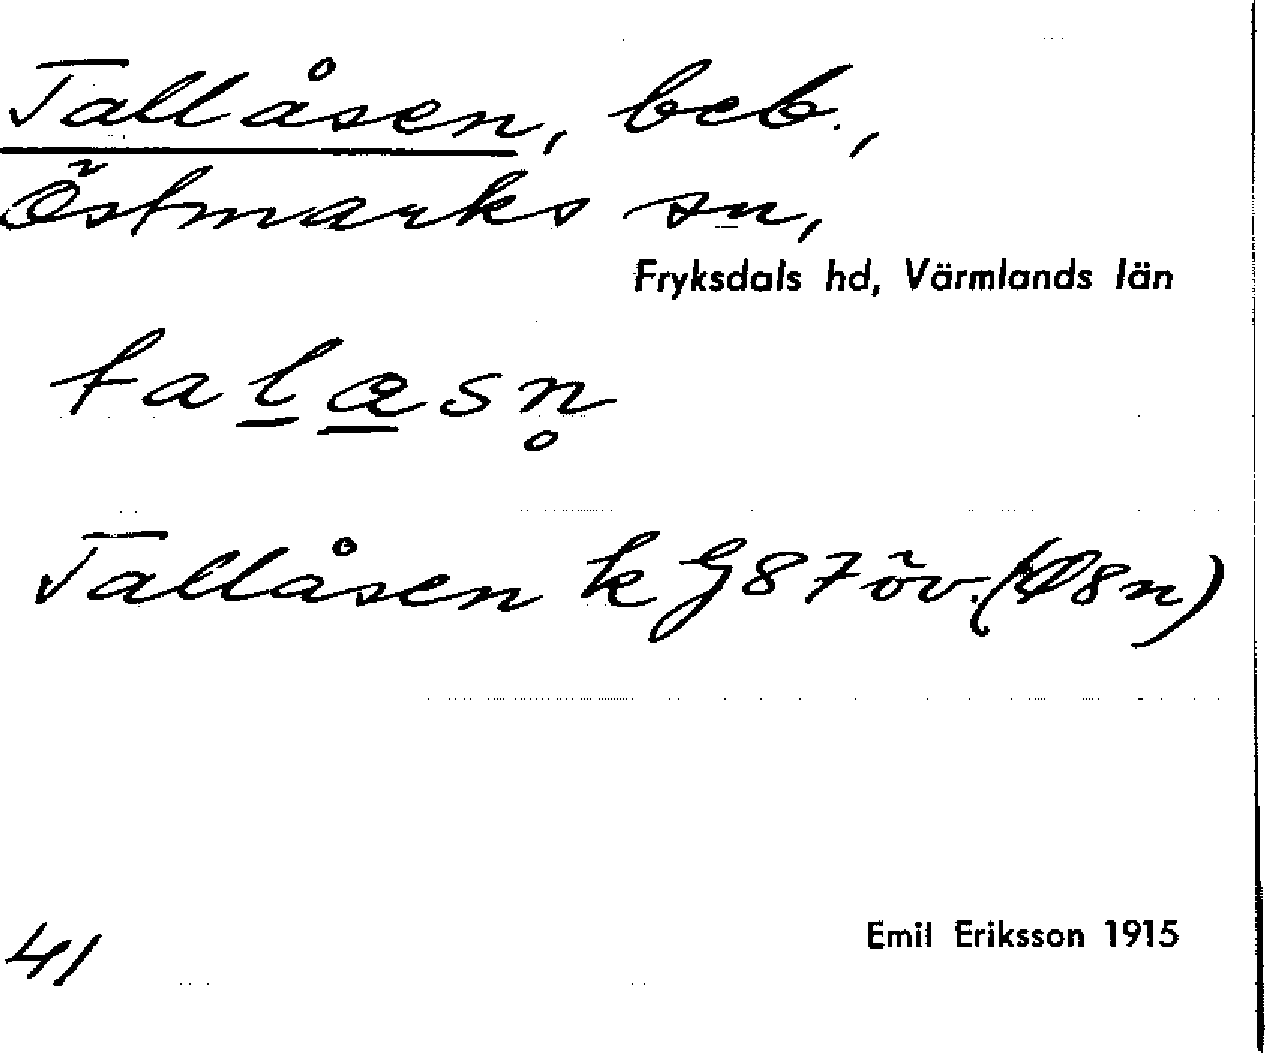 Tallåsen, beb.,
Östmarks sn,
Fryksdals hd, Värmlands län
Tallåsen k G87öv.
41
Emil Eriksson 1915